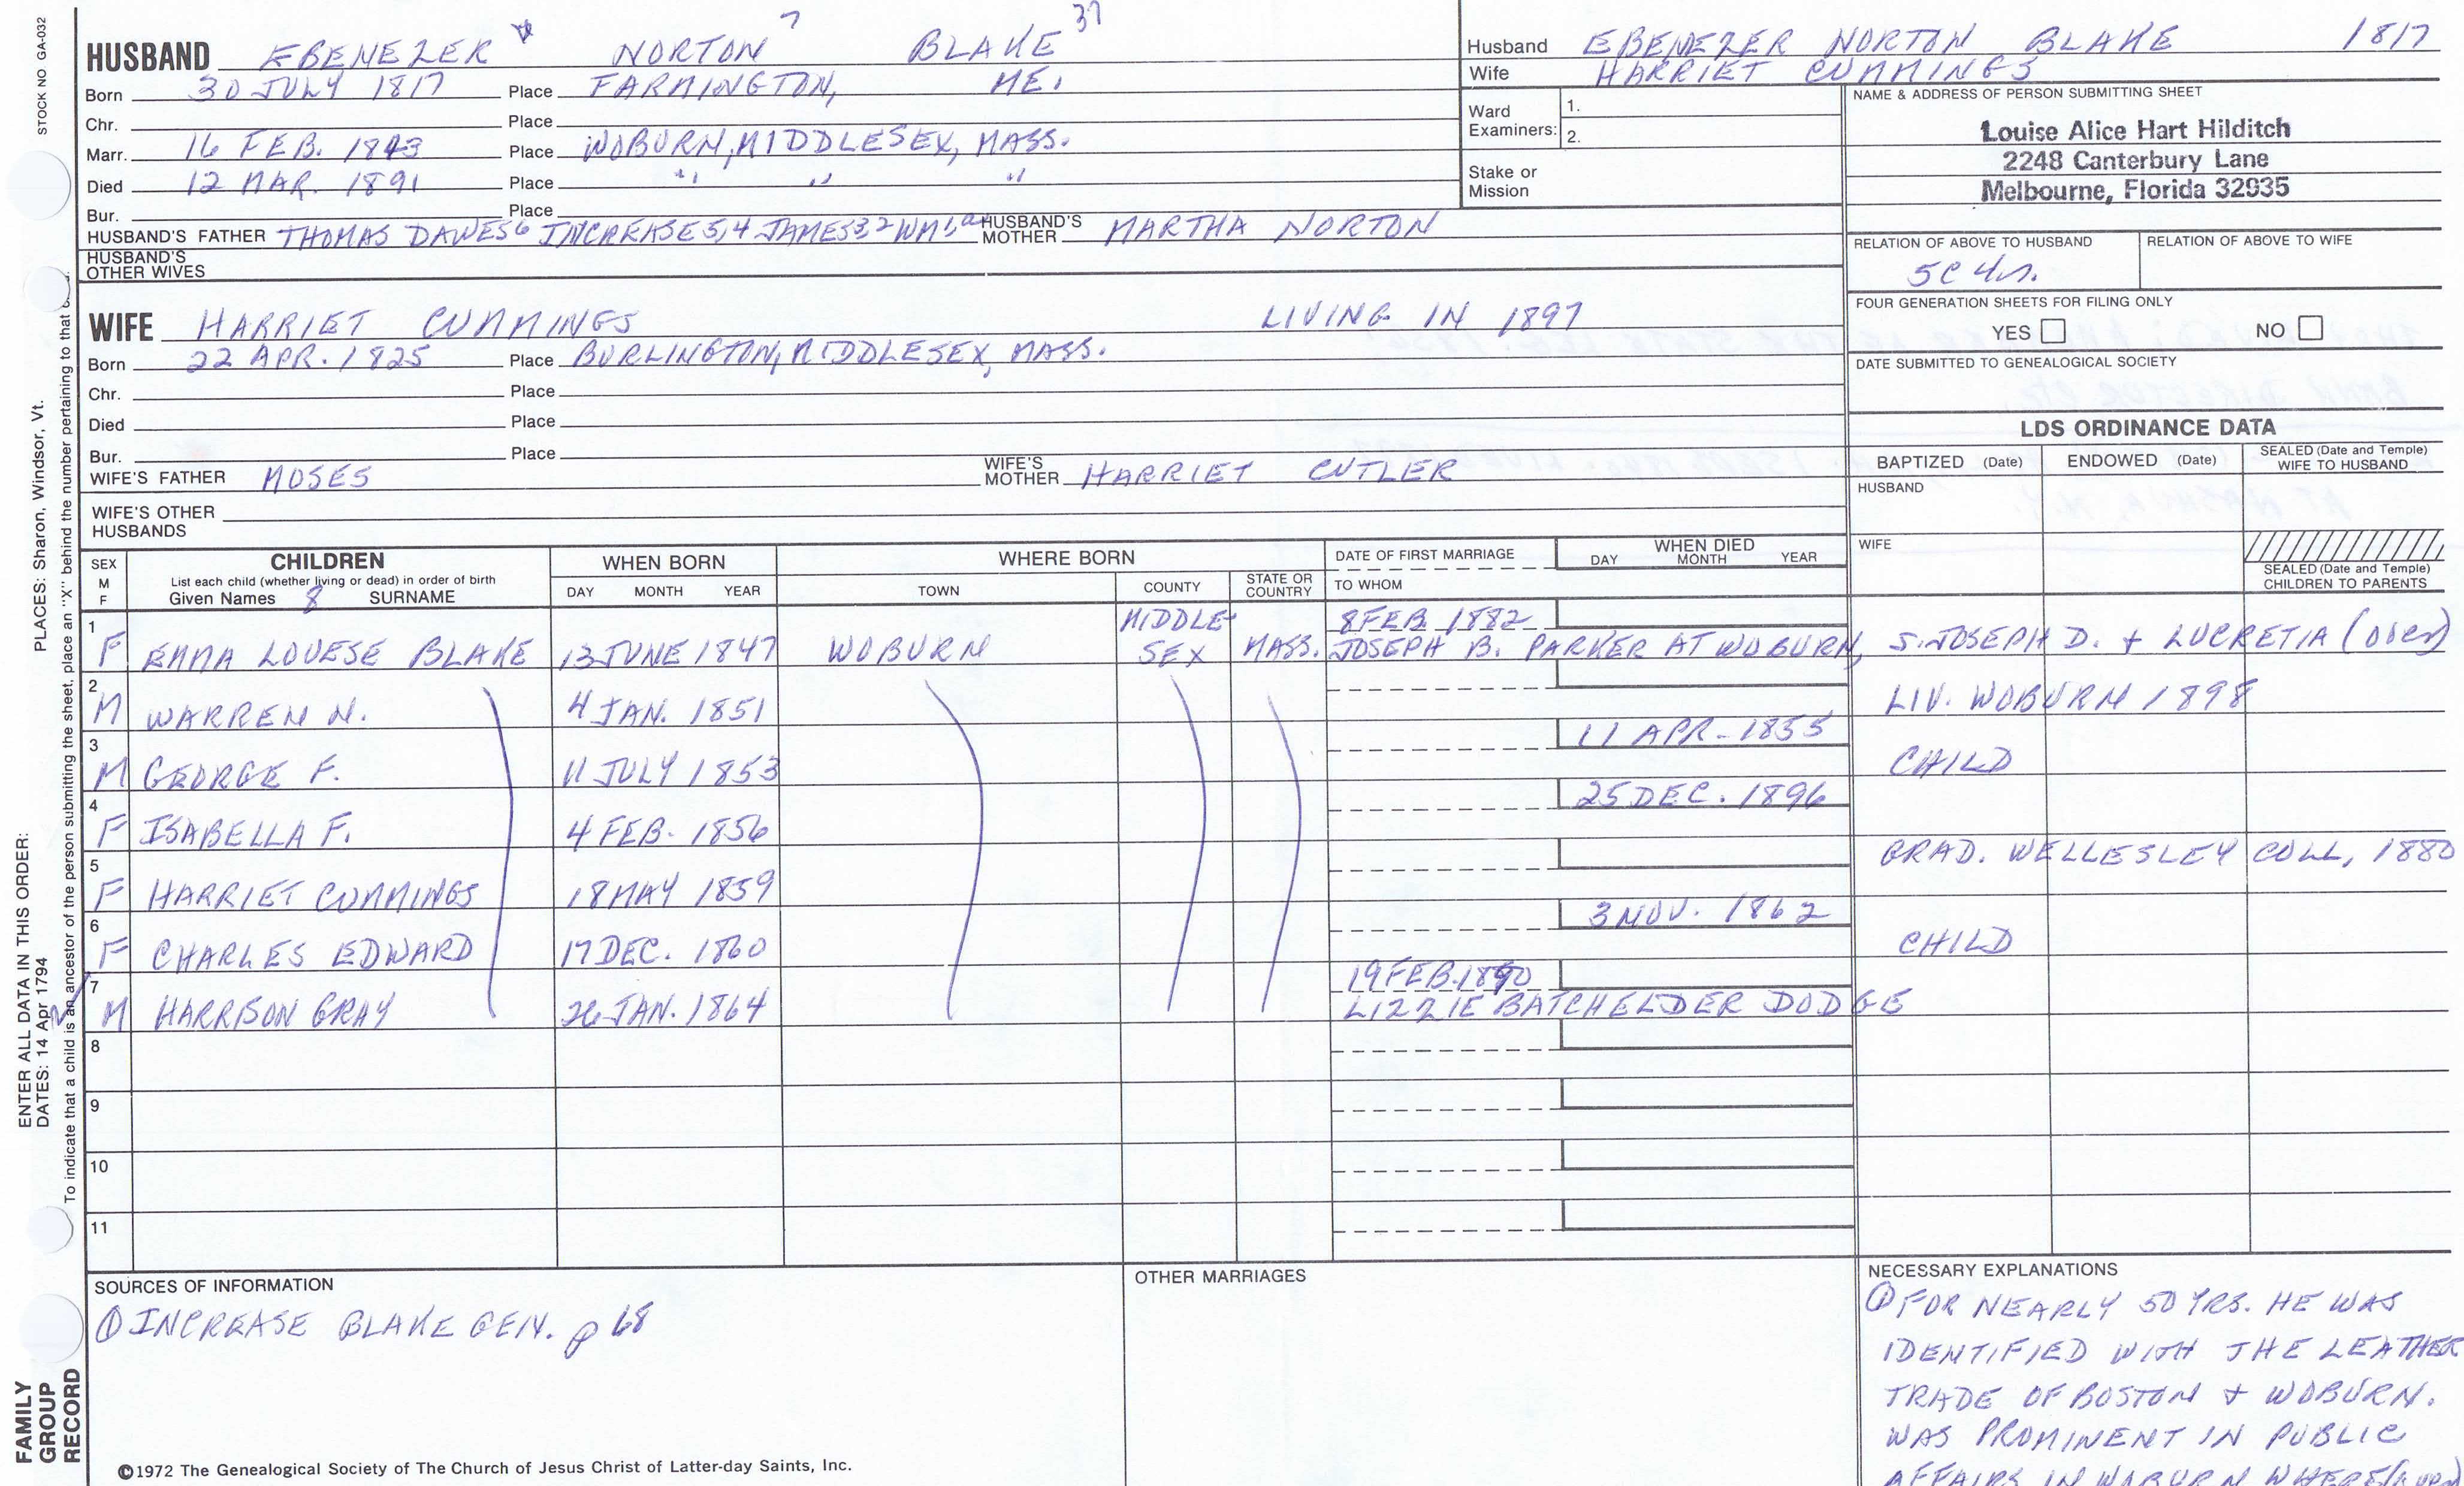 STOCK NO GA-032
HUSBAND EBENEZER NORTON 7 BLAKE 37
Born 30 JULY 1817 Place FARMINGTON, ME.
Chr. Place
Marr. 16 FEB. 1843 Place WOBURN, MIDDLESEX, MASS.
Died 12 MAR. 1891 Place " " "
Bur. Place
HUSBAND'S FATHER THOMAS DAWES6 INCREASE5,4 JAMES3,2 WM1, HUSBAND'S MOTHER MARTHA NORTON
HUSBAND'S OTHER WIVES
Husband EBENEZER NORTON BLAKE 1817
Wife HARRIET CUMMINGS
Ward Examiners: 1.
2.
Stake or Mission
NAME & ADDRESS OF PERSON SUBMITTING SHEET
Louise Alice Hart Hilditch
2248 Canterbury Lane
Melbourne, Florida 32935
RELATION OF ABOVE TO HUSBAND RELATION OF ABOVE TO WIFE
5C 4r.
FOUR GENERATION SHEETS FOR FILING ONLY
YES NO
DATE SUBMITTED TO GENEALOGICAL SOCIETY
WIFE HARRIET CUMMINGS LIVING IN 1897
Born 22 APR. 1825 Place BURLINGTON, MIDDLESEX, MASS.
Chr. Place
Died Place
Bur. Place
WIFE'S FATHER MOSES WIFE'S MOTHER HARRIET CUTLER
WIFE'S OTHER HUSBANDS
LDS ORDINANCE DATA
BAPTIZED (Date) ENDOWED (Date) SEALED (Date and Temple) WIFE TO HUSBAND
HUSBAND
WIFE
SEALED (Date and Temple) CHILDREN TO PARENTS
SEX M F
CHILDREN
List each child (whether living or dead) in order of birth
Given Names 8 SURNAME
WHEN BORN
DAY MONTH YEAR
WHERE BORN
TOWN COUNTY STATE OR COUNTRY
DATE OF FIRST MARRIAGE
TO WHOM
WHEN DIED
DAY MONTH YEAR
1 F EMMA LOUESE BLAKE 13 JUNE 1847 WOBURN MIDDLE-SEX MASS. 8 FEB 1882
JOSEPH B. PARKER AT WOBURN, S. JOSEPH D. + LUCRETIA (OBER)
2 M WARREN N. 4 JAN. 1851 LIV. WOBURN 1898
3 M GEORGE F. 11 JULY 1853 11 APR. 1855 CHILD
4 F ISABELLA F. 4 FEB. 1856 25 DEC. 1896
5 F HARRIET CUMMINGS 18 MAY 1859 GRAD. WELLESLEY COLL, 1880
6 F CHARLES EDWARD 17 DEC. 1860 3 NOV. 1862 CHILD
7 M HARRISON GRAY 26 JAN. 1864 19 FEB. 1890
LIZZIE BATCHELDER DODGE
8
9
10
11
SOURCES OF INFORMATION
① INCREASE BLAKE GEN. p 68
OTHER MARRIAGES
NECESSARY EXPLANATIONS
① FOR NEARLY 50 YRS. HE WAS
IDENTIFIED WITH THE LEATHER
TRADE OF BOSTON + WOBURN.
WAS PROMINENT IN PUBLIC
AFFAIRS IN WOBURN WHERE (over)
©1972 The Genealogical Society of The Church of Jesus Christ of Latter-day Saints, Inc.
FAMILY GROUP RECORD
ENTER ALL DATA IN THIS ORDER:
DATES: 14 Apr 1794
PLACES: Sharon, Windsor, Vt.
To indicate that a child is an ancestor of the person submitting the sheet, place an "X" behind the number pertaining to that